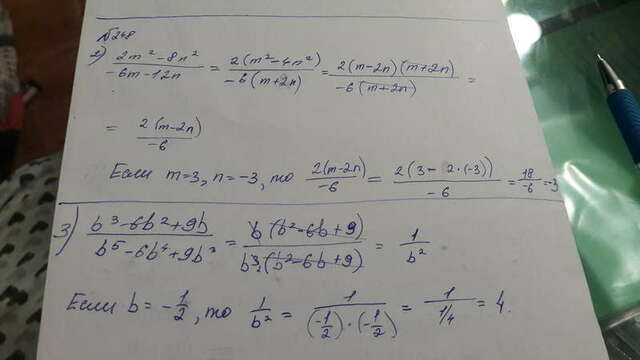 №248
2) (2m² - 8n²)/(-6m - 12n) = 2(m² - 4n²)/(-6(m + 2n)) = 2(m - 2n)(m + 2n)/(-6(m + 2n)) =
= 2(m - 2n)/(-6)
Если m = 3, n = -3, то 2(m - 2n)/(-6) = 2(3 - 2·(-3))/(-6) = 18/(-6) = -3
3) (b³ - 6b² + 9b)/(b⁵ - 6b⁴ + 9b³) = b(b² - 6b + 9)/(b³(b² - 6b + 9)) = 1/b²
Если b = -1/2, то 1/b² = 1/((-1/2)·(-1/2)) = 1/(1/4) = 4.